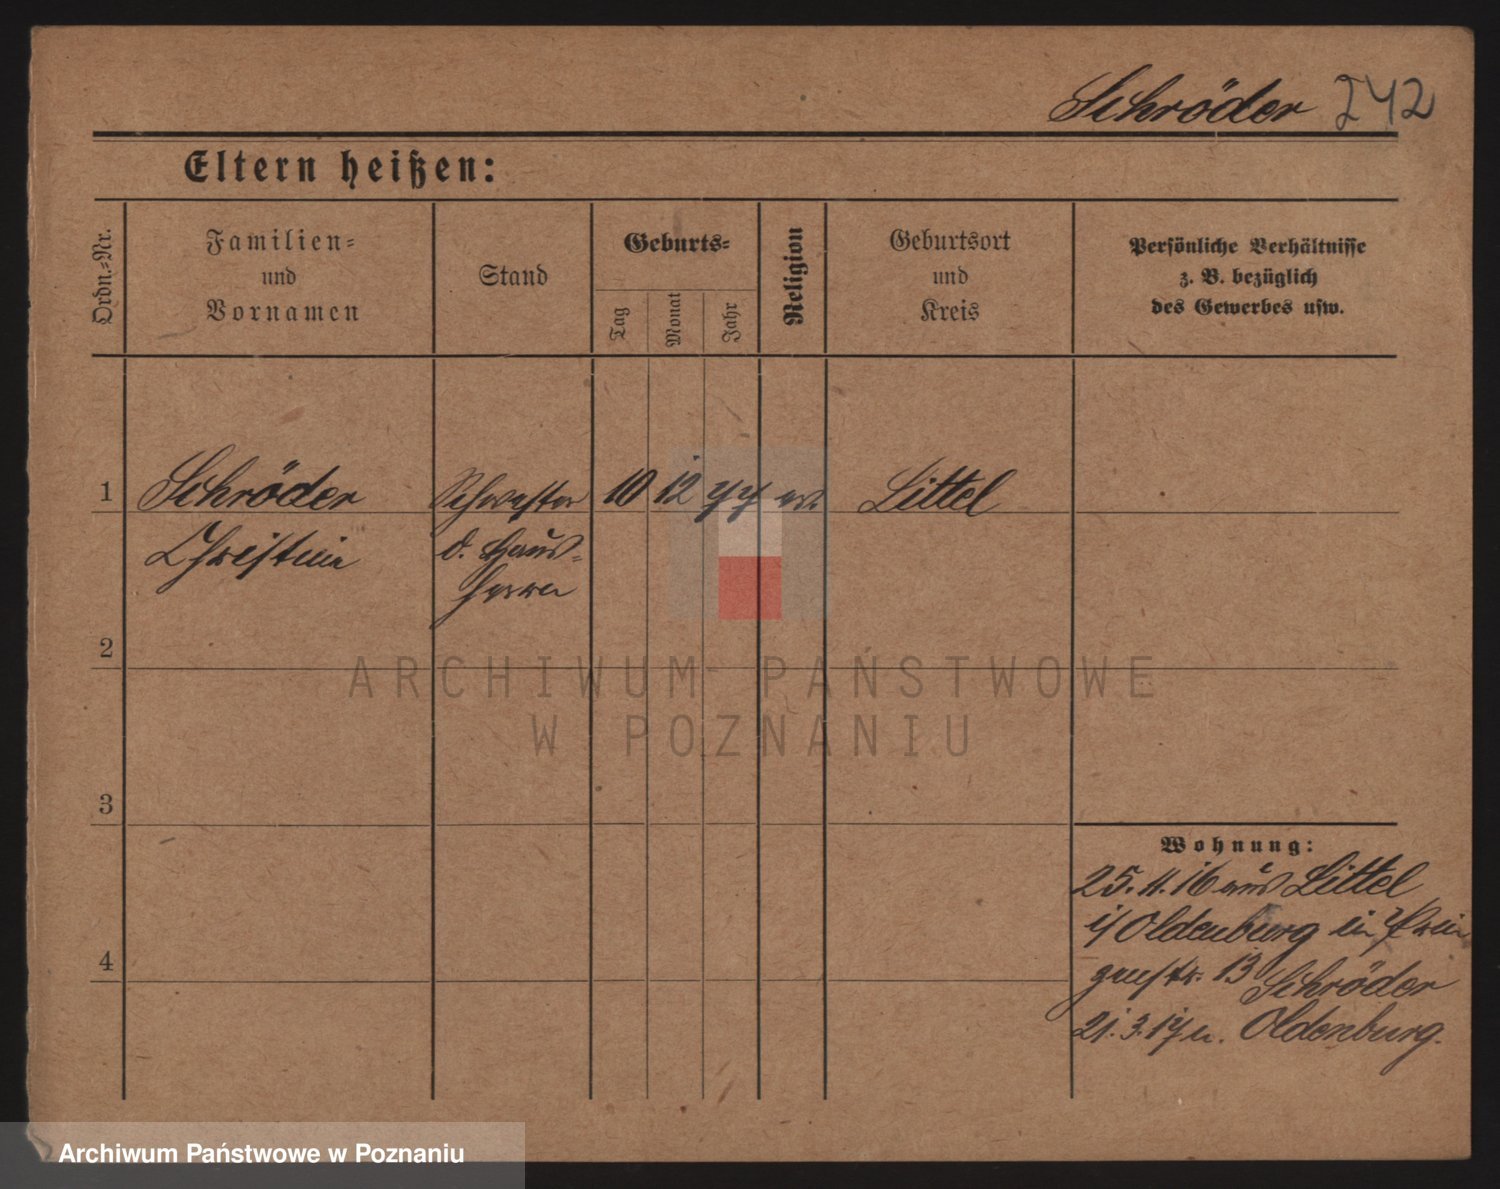 Schröder 242
Eltern heißen:
Ordn.-Nr.
Familien-
und
Vornamen
Stand
Geburts-
Tag
Monat
Jahr
Religion
Geburtsort
und
Kreis
Persönliche Verhältnisse
z. B. bezüglich
des Gewerbes usw.
1 Schröder Schwester 10 12 77 ev. Littel
Christine d. Haus-
herrn
2
3
4
Wohnung:
25.11.16 aus Littel
i/Oldenburg in
13 Schröder
21.3.17 n. Oldenburg.
ARCHIWUM PAŃSTWOWE
W POZNANIU
Archiwum Państwowe w Poznaniu